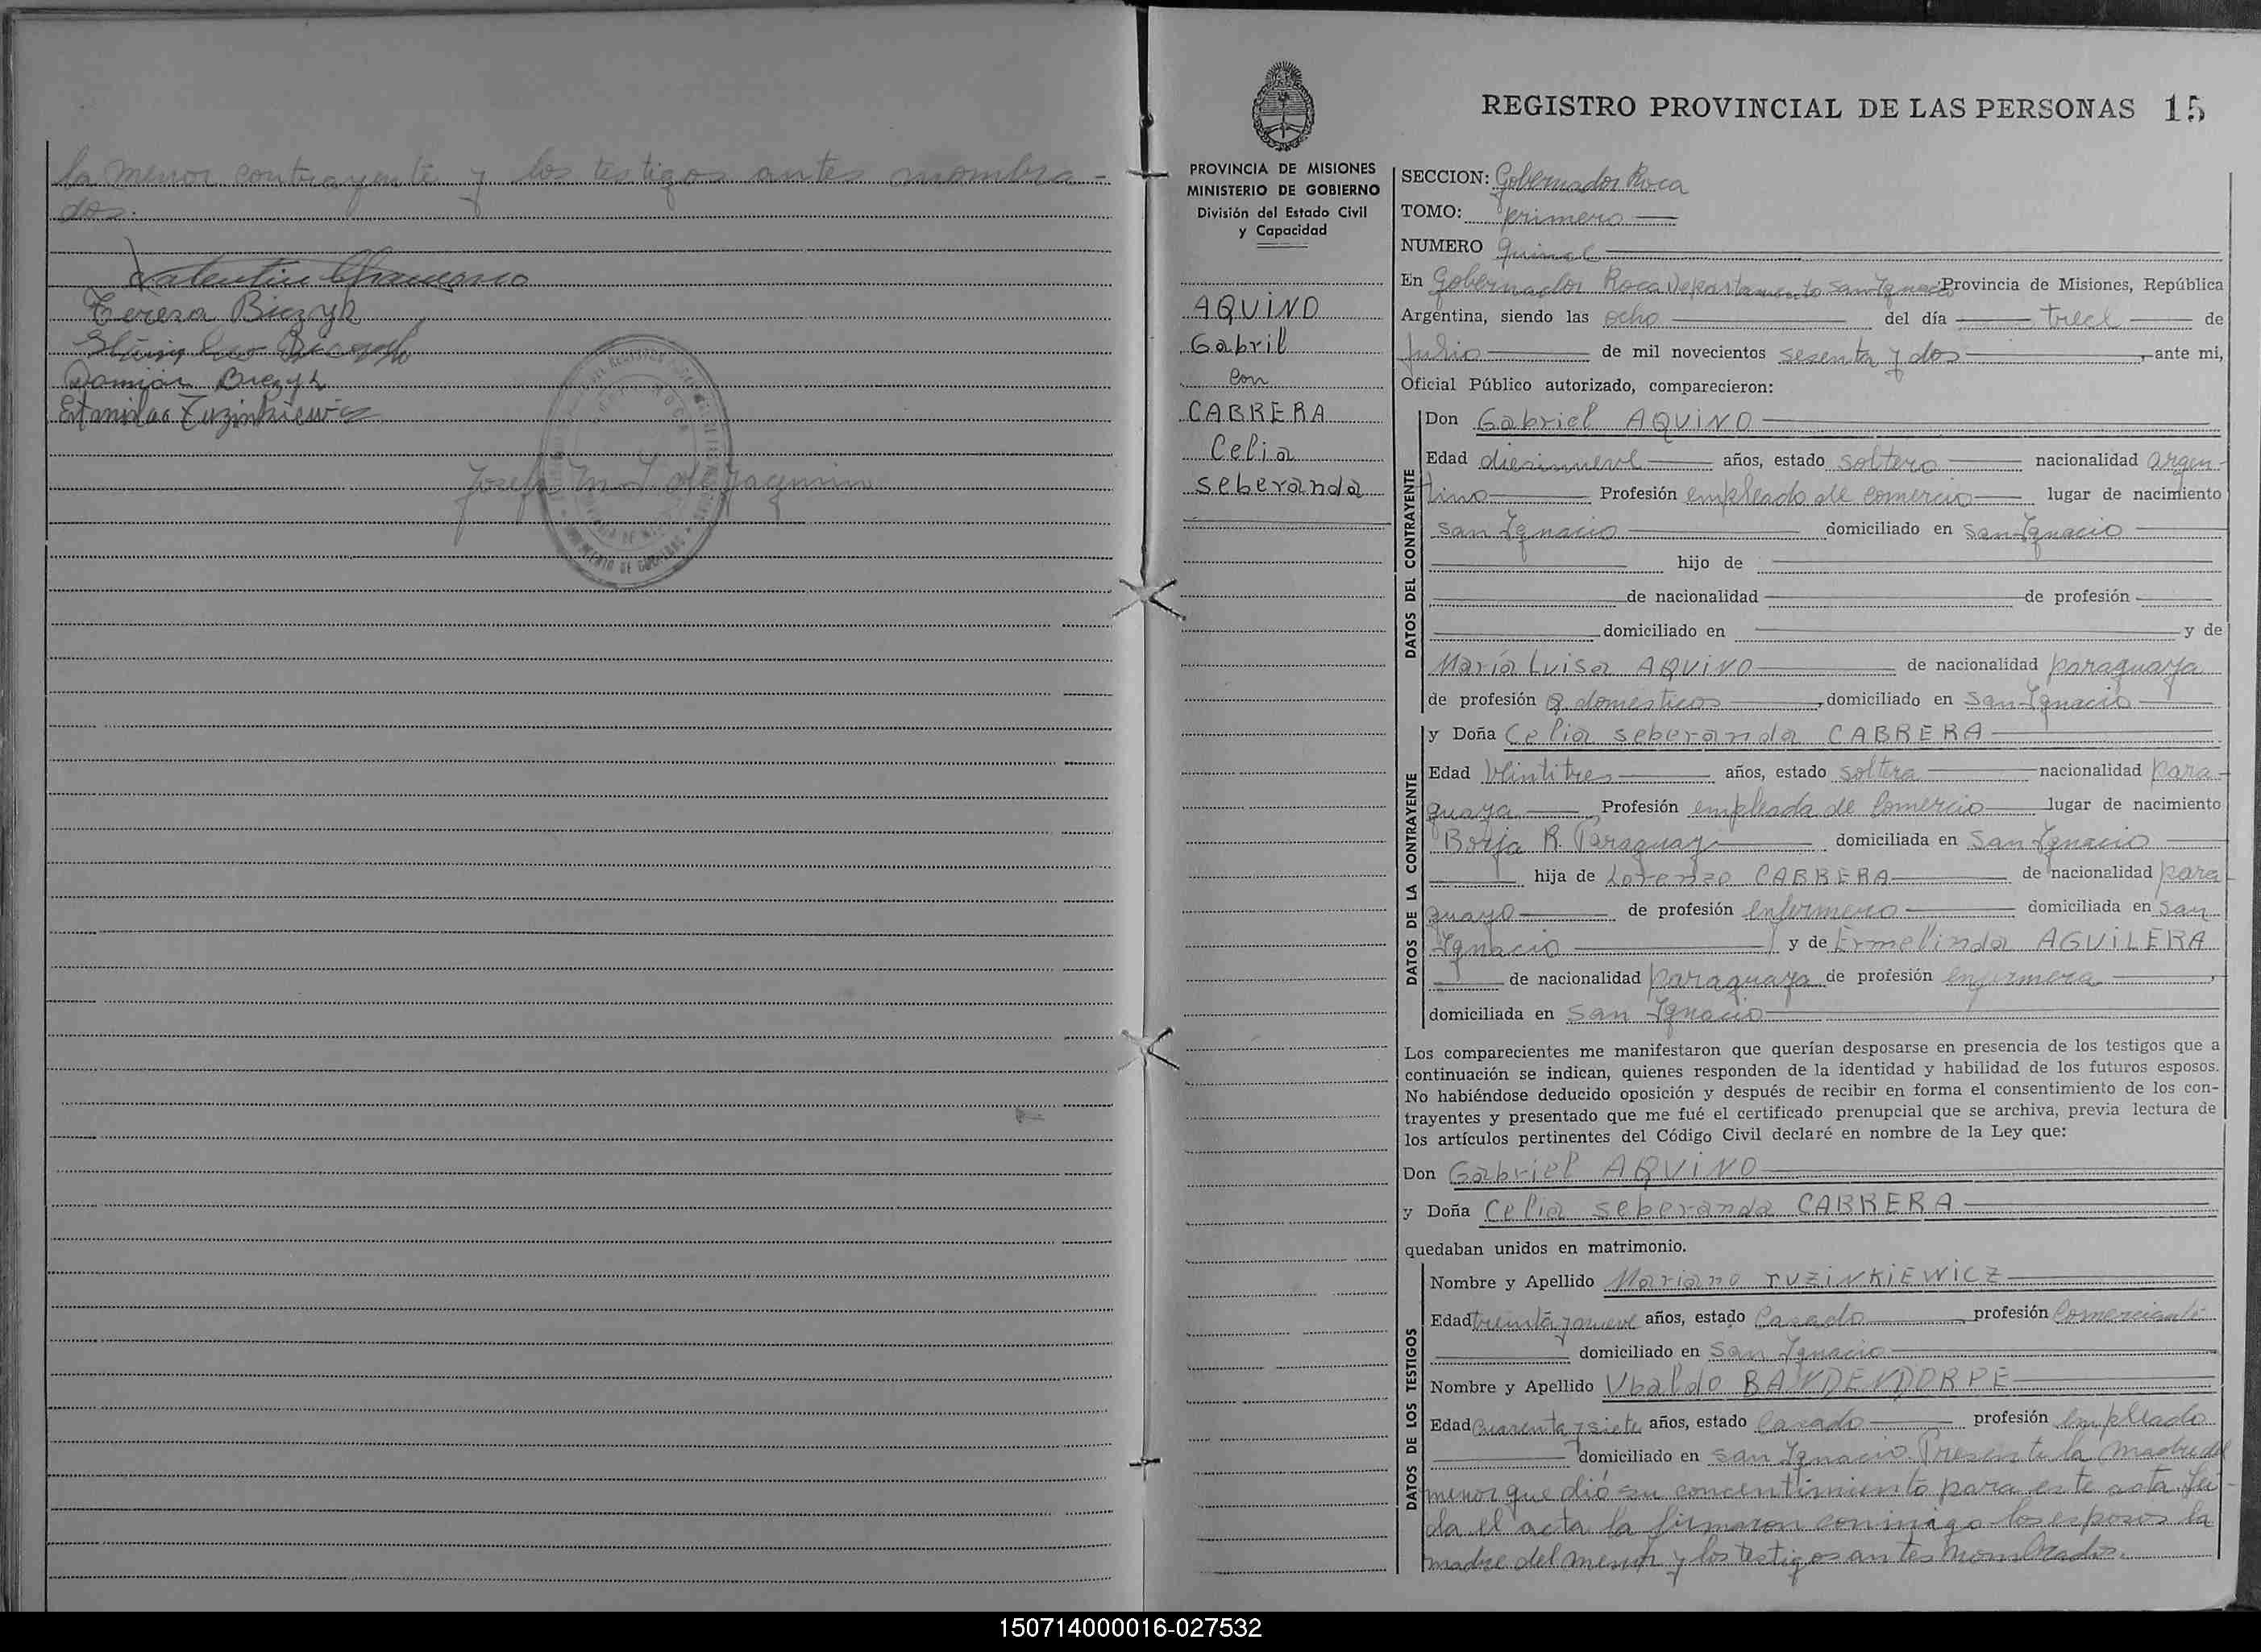 la menor contrayente y los testigos antes nombra-
dos.
Valentin
Teresa Biczyk
Damián Biczyk
Estanislao Tuzinkiewicz
Josefa M. L. de Jacquin
REGISTRO PROVINCIAL DE LAS PERSONAS 15
PROVINCIA DE MISIONES
MINISTERIO DE GOBIERNO
División del Estado Civil
y Capacidad
AQUINO
Gabril
con
CABRERA
Celia
seberanda
SECCION: Gobernador Roca
TOMO: primero
NUMERO quince
En Gobernador Roca Departamento San Ignacio Provincia de Misiones, República
Argentina, siendo las ocho del día trece de
Julio de mil novecientos sesenta y dos, ante mi,
Oficial Público autorizado, comparecieron:
DATOS DEL CONTRAYENTE
Don Gabriel AQUINO
Edad diesinueve años, estado soltero nacionalidad argen-
tino Profesión empleado de comercio lugar de nacimiento
San Ignacio domiciliado en San Ignacio
hijo de
de nacionalidad de profesión
domiciliado en y de
María Luisa AQUINO de nacionalidad paraguaya
de profesión Q. domesticos, domiciliado en San Ignacio
DATOS DE LA CONTRAYENTE
y Doña Celia seberanda CABRERA
Edad Veintitres años, estado soltera nacionalidad para-
guaya Profesión empleada de Comercio lugar de nacimiento
Borja R. Paraguay domiciliada en San Ignacio
hija de Lorenzo CABRERA de nacionalidad para-
guayo de profesión enfermero domiciliada en San
Ignacio y de Ermelinda AGUILERA
de nacionalidad paraguaya de profesión enfermera,
domiciliada en San Ignacio
Los comparecientes me manifestaron que querían desposarse en presencia de los testigos que a
continuación se indican, quienes responden de la identidad y habilidad de los futuros esposos.
No habiéndose deducido oposición y después de recibir en forma el consentimiento de los con-
trayentes y presentado que me fué el certificado prenupcial que se archiva, previa lectura de
los artículos pertinentes del Código Civil declaré en nombre de la Ley que:
Don Gabriel AQUINO
y Doña Celia seberanda CABRERA
quedaban unidos en matrimonio.
DATOS DE LOS TESTIGOS
Nombre y Apellido Mariano TUZINKIEWICZ
Edad treinta y nueve años, estado Casado profesión Comerciante
domiciliado en San Ignacio
Nombre y Apellido Ubaldo BANDENDORPE
Edad Cuarenta y siete años, estado Casado profesión empleado
domiciliado en San Ignacio. Presente la madre del
menor que dió su concentimiento para este acta. Leí-
da el acta la firmaron conmigo los esposos la
madre del menor y los testigos antes nombrados.
150714000016-027532